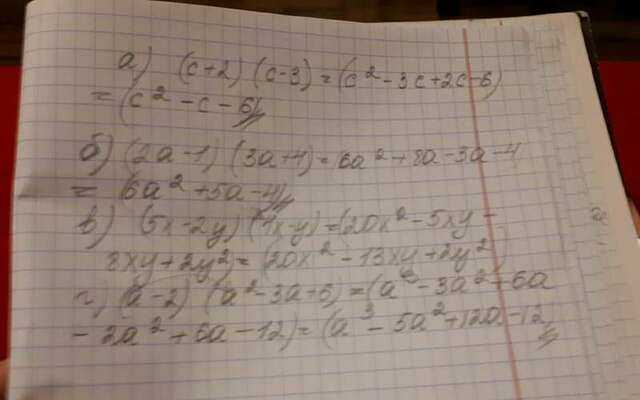 а) (c+2) (c-3) = (c² - 3c + 2c - 6)
= (c² - c - 6)
б) (2a-1) (3a+4) = 6a² + 8a - 3a - 4
= (6a² + 5a - 4)
в) (5x-2y) (4x-y) = (20x² - 5xy -
8xy + 2y²) = (20x² - 13xy + 2y²)
г) (a-2) (a² - 3a + 6) = (a³ - 3a² + 6a
- 2a² + 6a - 12) = (a³ - 5a² + 12a - 12)